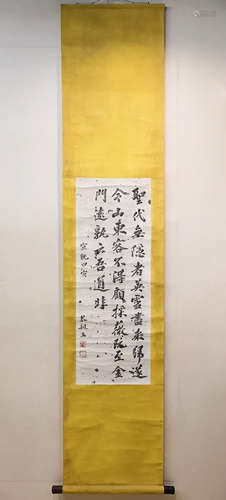 聖代無隱者英靈盡來歸遂
令山東客不得顧採薇既至金
門遠孰云吾道非